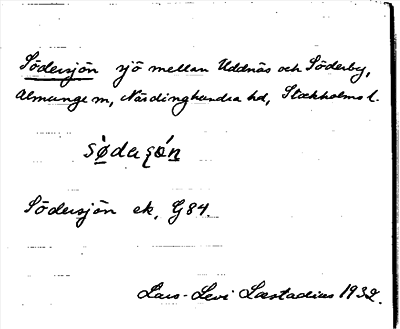 Södersjön sjö mellan Uddnäs och Söderby,
Almunge sn, Närdinghundra hd, Stockholms l.
Södersjön ek. G 84.
Lars-Levi Læstadius 1932.